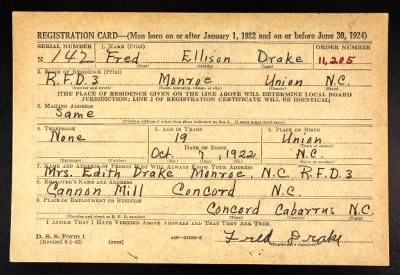 REGISTRATION CARD—(Men born on or after January 1, 1922 and on or before June 30, 1924)
SERIAL NUMBER 1. NAME (Print) ORDER NUMBER
N 142 Fred Ellison Drake 11,205
(First) (Middle) (Last)
2. PLACE OF RESIDENCE (Print)
R.F.D. 3 Monroe Union N.C.
(Number and street) (Town, township, village, or city) (County) (State)
[THE PLACE OF RESIDENCE GIVEN ON THE LINE ABOVE WILL DETERMINE LOCAL BOARD
JURISDICTION; LINE 2 OF REGISTRATION CERTIFICATE WILL BE IDENTICAL]
3. MAILING ADDRESS
Same
(Mailing address if other than place indicated on line 2. If same, insert word same)
4. TELEPHONE 5. AGE IN YEARS 6. PLACE OF BIRTH
None 19 Union
DATE OF BIRTH (Town or county)
Oct. 7, 1922 N.C.
(Exchange) (Number) (Mo.) (Day) (Yr.) (State or country)
7. NAME AND ADDRESS OF PERSON WHO WILL ALWAYS KNOW YOUR ADDRESS
Mrs. Edith Drake Monroe, N.C. R.F.D. 3
8. EMPLOYER'S NAME AND ADDRESS
Cannon Mill Concord N.C.
9. PLACE OF EMPLOYMENT OR BUSINESS
Concord Cabarrus N.C.
(Number and street or R. F. D. number) (Town) (County) (State)
I AFFIRM THAT I HAVE VERIFIED ABOVE ANSWERS AND THAT THEY ARE TRUE.
D. S. S. Form 1
(Revised 6-9-42) (over) Fred Drake